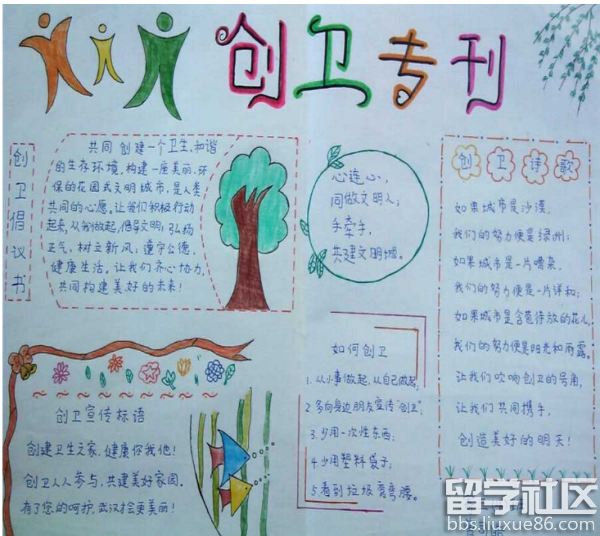 创卫专刊
创卫倡议书
共同创建一个卫生、和谐
的生存环境,构建一座美丽、环
保的花园式文明城市,是人类
共同的心愿,让我们积极行动
起来,从我做起,倡导文明;弘扬
正气,树立新风;遵守公德,
健康生活。让我们齐心协力,
共同构建美好的未来!
心连心,
同做文明人;
手牵手,
共建文明城。
创卫诗歌
如果城市是沙漠,
我们的努力便是绿洲;
如果城市是一片嘈杂,
我们的努力便是一片详和;
如果城市是含苞待放的花儿,
我们的努力便是阳光和雨露。
让我们吹响创卫的号角,
让我们共同携手,
创造美好的明天!
创卫宣传标语
创建卫生之家,健康你我他!
创卫人人参与,共建美好家园。
有了您的呵护,武汉才会更美丽!
如何创卫
1.从小事做起,从自己做起,
2.多向身边朋友宣传“创卫”;
3.少用一次性东西;
4.少用塑料袋子;
5.看到垃圾弯弯腰。
留学社区
bbs.liuxue86.com